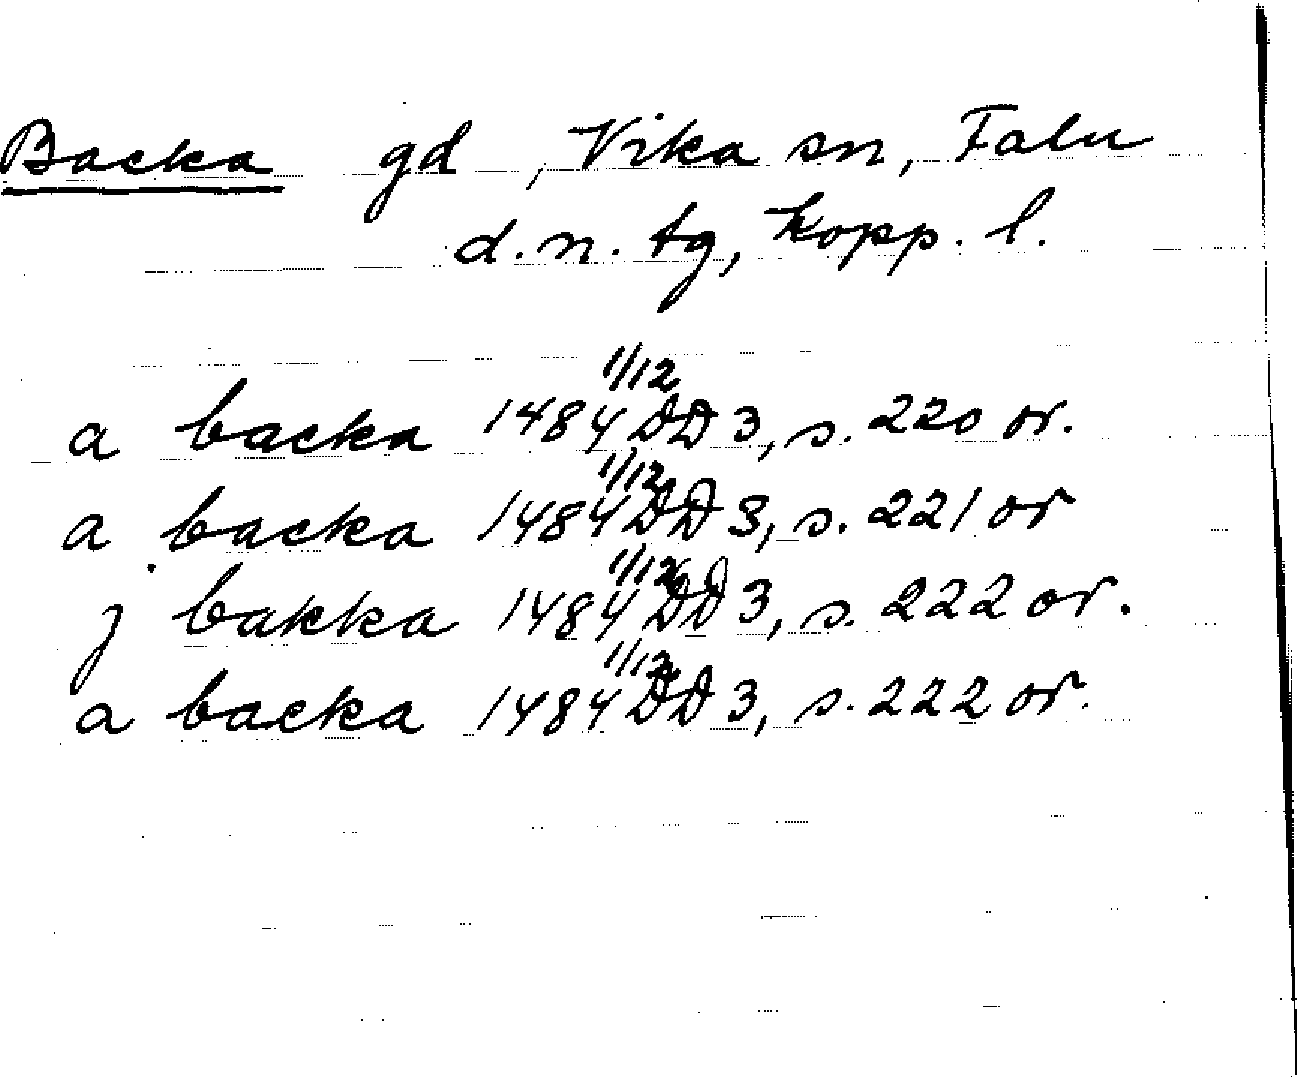 Backa gd, Vika sn, Falu
d.n. tg, Kopp. l.
a backa 1484 1/12 DD 3, s. 220 or.
a backa 1484 1/12 DD 3, s. 221 or
j bakka 1484 1/12 DD 3, s. 222 or.
a backa 1484 1/12 DD 3, s. 222 or.